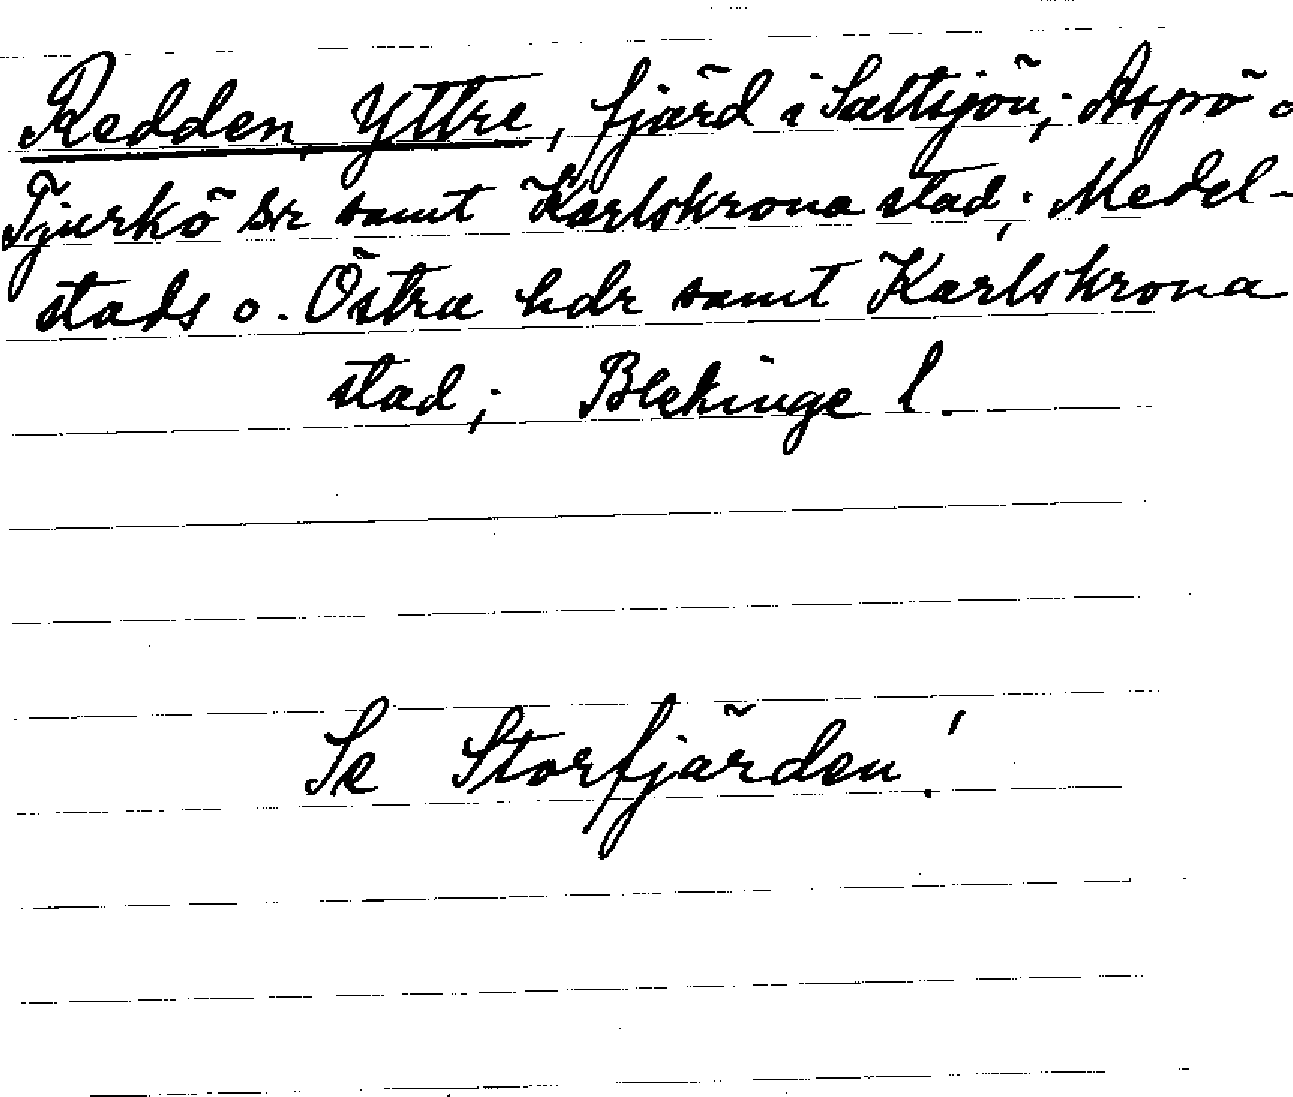 Redden, Yttre, fjärd i Saltsjön; Aspö o
Tjurkö snr samt Karlskrona stad; Medel-
stads o. Östra hdr samt Karlskrona
stad; Blekinge l.
Se Storfjärden!